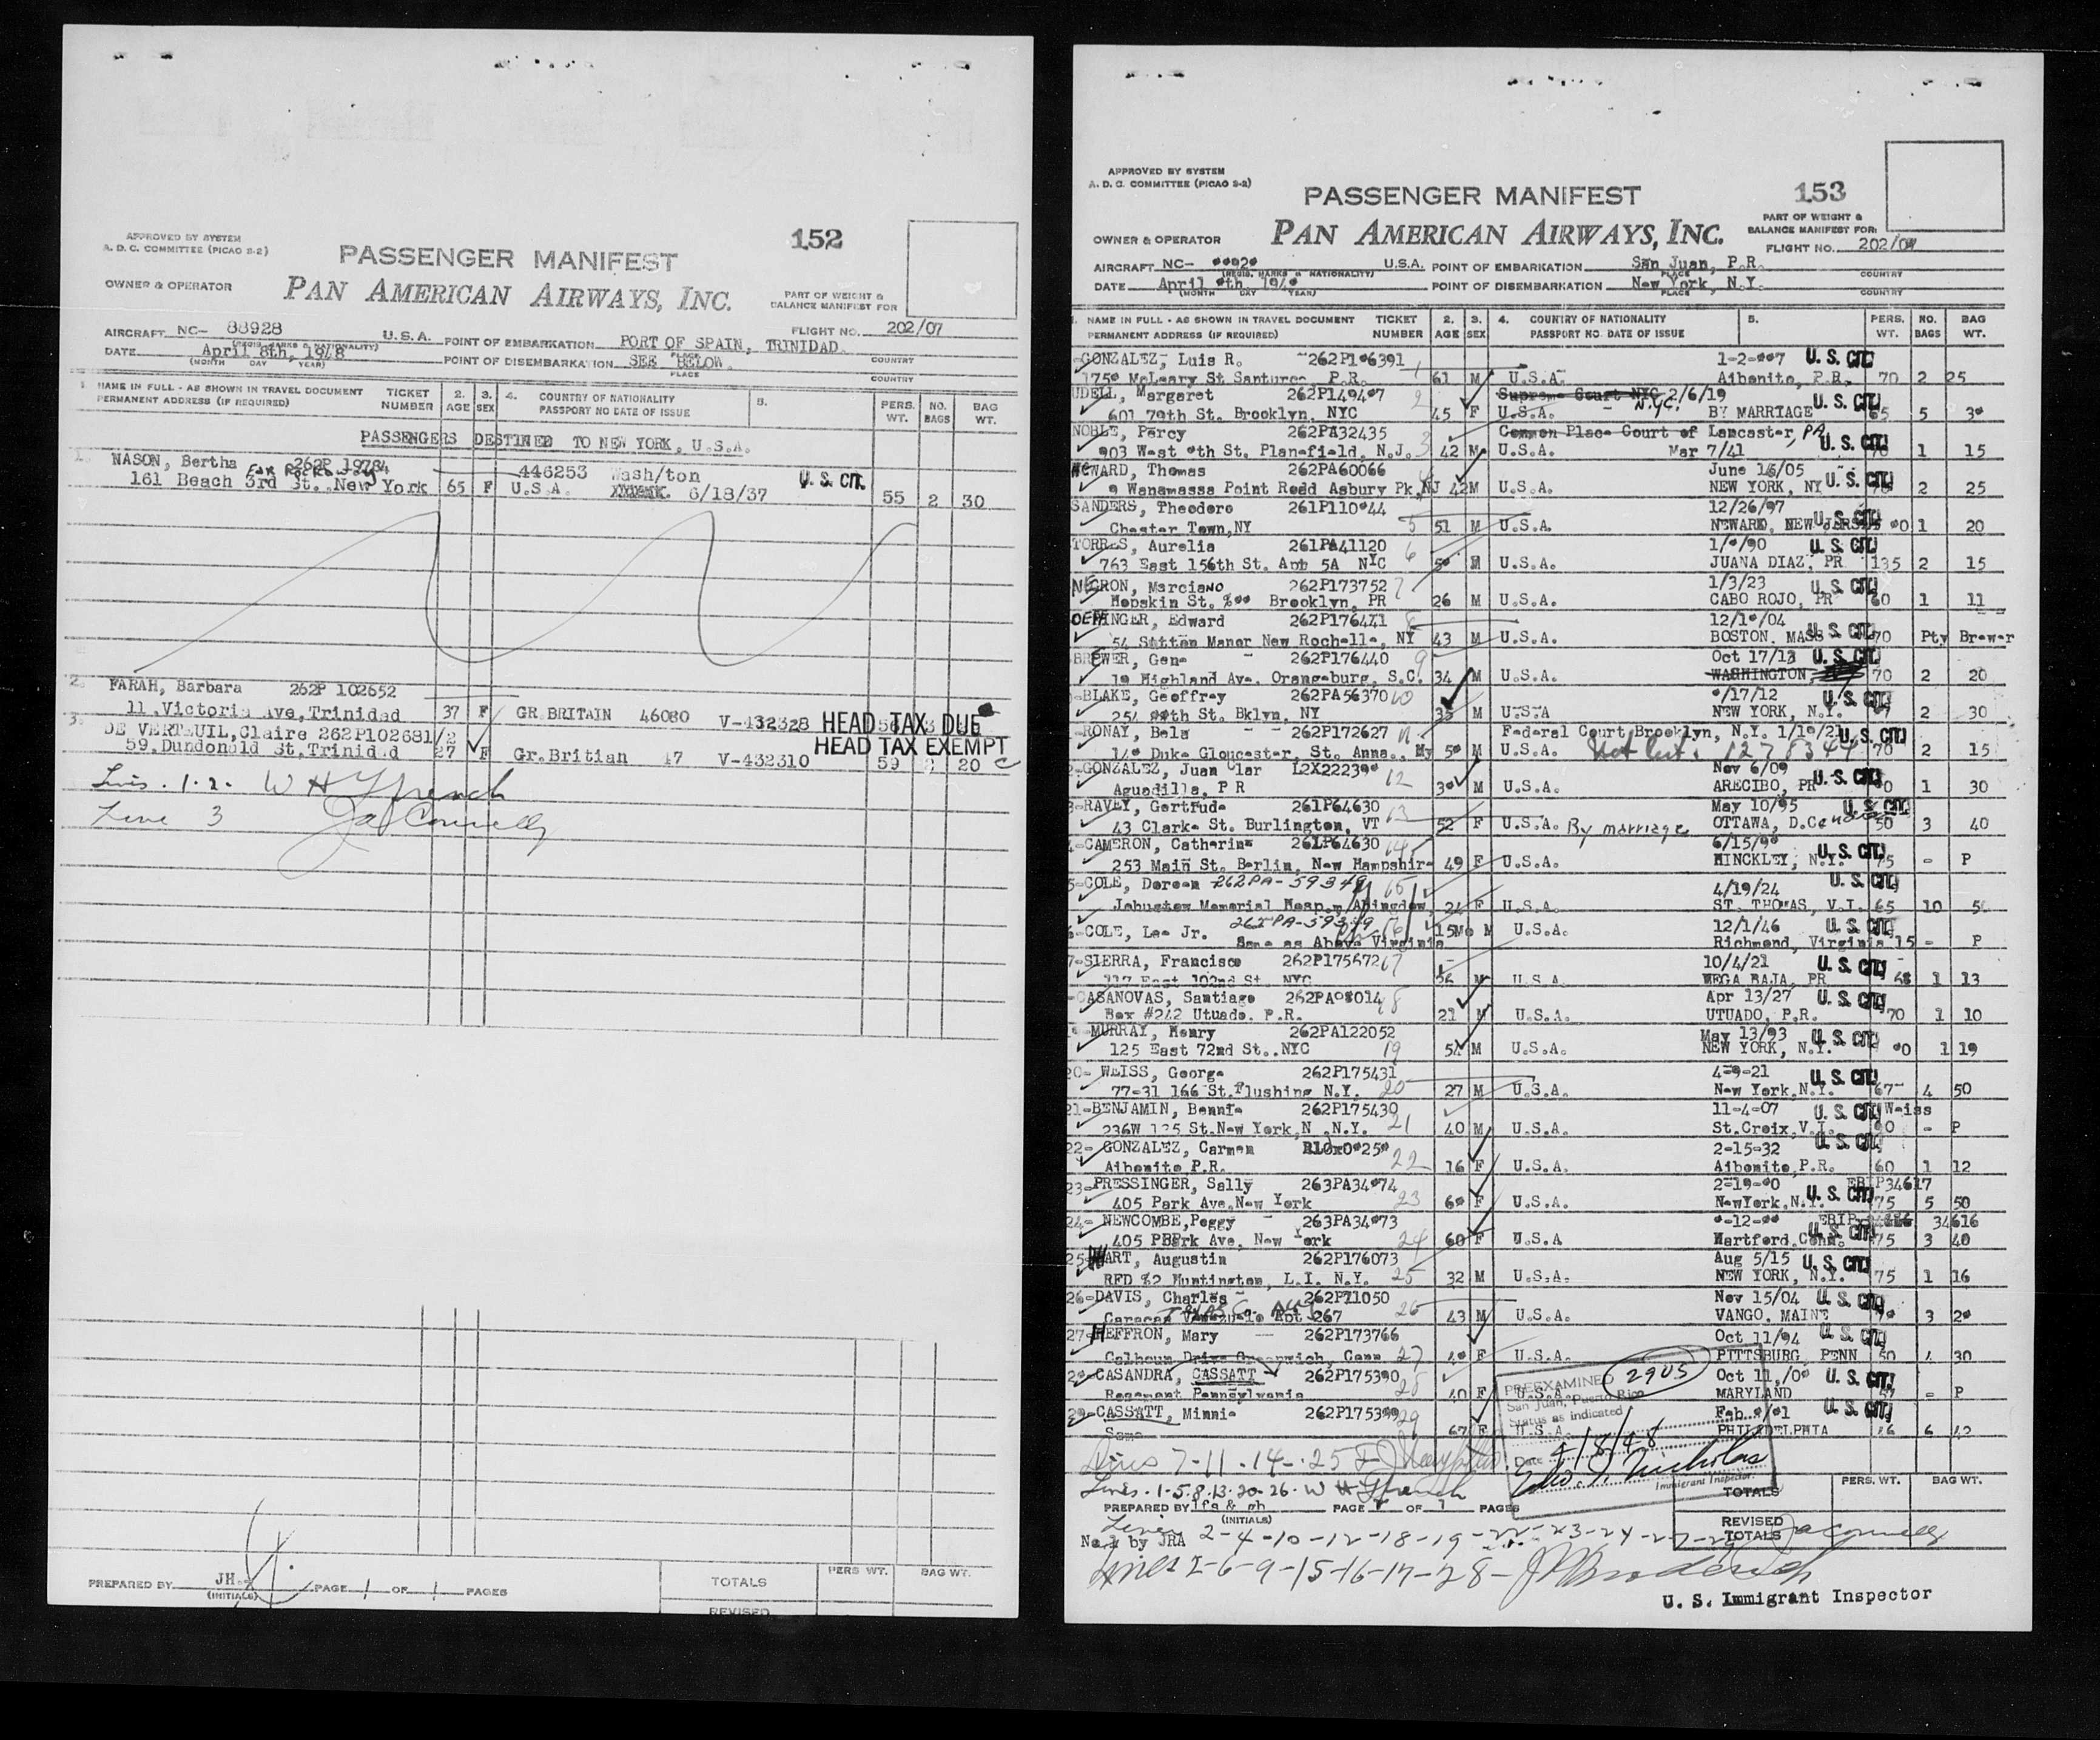 152
APPROVED BY SYSTEM
A. D. C. COMMITTEE (PICAO S-2)
PASSENGER MANIFEST
OWNER & OPERATOR PAN AMERICAN AIRWAYS, INC.
PART OF WEIGHT &
BALANCE MANIFEST FOR
AIRCRAFT NC- 88928 U.S.A. POINT OF EMBARKATION PORT OF SPAIN, TRINIDAD FLIGHT NO. 202/07
(REGIS. MARKS & NATIONALITY) PLACE COUNTRY
DATE April 8th, 1948 POINT OF DISEMBARKATION SEE BELOW.
(MONTH DAY YEAR) PLACE COUNTRY
1. NAME IN FULL - AS SHOWN IN TRAVEL DOCUMENT TICKET 2. 3. 4. COUNTRY OF NATIONALITY 5. PERS. NO. BAG
PERMANENT ADDRESS (IF REQUIRED) NUMBER AGE SEX PASSPORT NO DATE OF ISSUE WT. BAGS WT.
PASSENGERS DESTINED TO NEW YORK, U.S.A.
1. NASON, Bertha 262P 19784 446253 Wash/ton U.S. CIT.
Far Rockaway
161 Beach 3rd St. New York 65 F U.S.A. 6/18/37 55 2 30
2. FARAH, Barbara 262P 102652
11,Victoria Ave,Trinidad 37 F GR BRITAIN 46080 V-432328 HEAD TAX DUE
3. DE VERTEUIL,Claire 262P102681/2 HEAD TAX EXEMPT
59,Dundonald St.Trinidad 27 F Gr.Britian 17 V-432310 59 2 20 c
Lines . 1-2. W H Ffrench
Line 3 JaConnelly
PREPARED BY JH. PAGE 1 OF 1 PAGES
(INITIALS)
TOTALS PERS WT. BAG WT.
REVISED
153
APPROVED BY SYSTEM
A. D. C. COMMITTEE (PICAO S-2)
PASSENGER MANIFEST
PART OF WEIGHT &
BALANCE MANIFEST FOR:
OWNER & OPERATOR PAN AMERICAN AIRWAYS, INC.
FLIGHT NO. 202/07
AIRCRAFT NC- U.S.A. POINT OF EMBARKATION San Juan, P.R.
(REGIS. MARKS & NATIONALITY) PLACE COUNTRY
DATE April POINT OF DISEMBARKATION New York, N.Y.
(MONTH DAY YEAR) PLACE COUNTRY
1. NAME IN FULL - AS SHOWN IN TRAVEL DOCUMENT TICKET 2. 3. 4. COUNTRY OF NATIONALITY 5. PERS. NO. BAG
PERMANENT ADDRESS (IF REQUIRED) NUMBER AGE SEX PASSPORT NO. DATE OF ISSUE WT. BAGS WT.
GONZALEZ, Luis R. U.S. CIT.
McLeary St Santurce P.R. 61 M U.S.A. Aibonito, P.R. 70 2 25
UDELL, Margaret 2 Supreme Court NYC 2/6/19 U.S. CIT.
601 79th St. Brooklyn, NYC 45 F U.S.A. N.Y.C. BY MARRIAGE 65 5
NOBLE, Percy 262PA32435 3 Common Place Court of Lancaster PA
903 West St. Planefield, N.J. 42 M U.S.A. Mar 7/41 U.S. CIT. 1 15
HOWARD, Thomas 262PA60066 June 16/05
9 Wanamassa Point Road Asbury Pk,NJ 42 M U.S.A. NEW YORK, NY U.S. CIT. 2 25
SANDERS, Theodore 5 12/26/97
Chester Town,NY 51 M U.S.A. NEWARK, NEW JERSEY U.S. CIT. 1 20
TORRES, Aurelia 261PA41120 6 U.S. CIT.
763 East 156th St. Apt 5A NYC M U.S.A. JUANA DIAZ, PR 135 2 15
NEGRON, Marciano 262P173752 7 1/3/23 U.S. CIT.
Hopskin St. Brooklyn, PR 26 M U.S.A. CABO ROJO, PR 60 1 11
OEPPINGER, Edward 262P176441 8
54 Sutton Manor New Rochelle, NY 43 M U.S.A. BOSTON, MASS U.S. CIT. 70 Pty Brewer
BREWER, Gene 262P176440 9 Oct 17/13 U.S. CIT.
19 Highland Ave. Orangeburg, S.C. 34 M U.S.A. WASHINGTON, 70 2 20
BLAKE, Geoffrey 262PA56370 10 U.S. CIT.
St. Bklyn, NY M U.S.A NEW YORK, N.Y. 2 30
RONAY, Bela 262P172627 11 Federal Court Brooklyn, N.Y. U.S. CIT.
Duke Gloucester, St. Anna., My M U.S.A. Nat Cert. 70 2 15
GONZALEZ, Juan 12 Nov 6/09 U.S. CIT.
Aguadilla, P R M U.S.A. ARECIBO, PR 1 30
RAVEY, Gertrude 261P64630 13 May 10/95 U.S. CIT.
43 Clarke St. Burlington, VT 52 F U.S.A. By marriage OTTAWA, 50 3 40
CAMERON, Catherine 261P64630 14 U.S. CIT.
253 Main St. Berlin, New Hampshire 49 F U.S.A. HINCKLEY, N.Y. - P
COLE, Doreen 262PA-59349 15 4/19/24 U.S. CIT.
Johnston Memorial Hosp., Abingdon, F U.S.A. ST. THOMAS, V.I. 65 10
COLE, Lee Jr. 16 15Mo M U.S.A. 12/1/46 U.S. CIT.
Same as Above Virginia Richmond, Virginia 15 - P
SIERRA, Francisco 262P175672 17 10/4/21 U.S. CIT.
317 East 102nd St. NYC M U.S.A. VEGA BAJA, PR 1 13
CASANOVAS, Santiago 18 Apr 13/27 U.S. CIT.
Box #242 Utuado. P.R. 21 M U.S.A. UTUADO, P.R. 70 1 10
MURRAY, Henry 262PA122052 May 13/93 U.S. CIT.
125 East 72nd St..NYC 19 54 M U.S.A. NEW YORK, N.Y. 1 19
20- WEISS, George 262P175431 4-9-21 U.S. CIT.
77-31 166 St.Flushing N.Y. 20 27 M U.S.A. New York,N.Y. 67 4 50
21-BENJAMIN, Bennie 262P175430 21 11-4-07 U.S. CIT. Weiss
236W 135 St.New York,N.,N.Y. 40 M U.S.A. St.Croix,V.I. - P
22- GONZALEZ, Carmen 22 2-15-32 U.S. CIT.
Aibonito P.R. 16 F U.S.A. Aibonito,P.R. 60 1 12
23-PRESSINGER, Sally EBIP34617
405 Park Ave,New York 23 F U.S.A. NewYork,N.Y. U.S. CIT. 75 5 50
24- NEWCOMBE,Peggy 34616
405 Park Ave, New York 24 60 F U.S.A Hartford,Conn. U.S. CIT. 75 3 40
25-HART, Augustin 262P176073 Aug 5/15 U.S. CIT.
RFD %2 Huntington, L.I. N.Y. 25 32 M U.S.A. NEW YORK, N.Y. 75 1 16
26-DAVIS, Charles 262P71050 Nov 15/04 U.S. CIT.
Caracas 26 43 M U.S.A. VANGO, MAINE 3
27-HEFFRON, Mary 262P173766 Oct 11/94 U.S. CIT.
Calhoun Drive Greenwich, Conn 27 F U.S.A. PITTSBURG, PENN 50 4 30
CASANDRA, CASSATT 262P175390 28 U.S. CIT.
Rosemont Pennsylvania 40 F U.S.A. MARYLAND - P
29-CASSATT, Minnie 29 U.S. CIT.
Same 67 F U.S.A. PHILADELPHIA 6 42
PREEXAMINED 2905
San Juan, Puerto Rico
Status as indicated
Date 4/8/48
Immigrant Inspector
Lines 7-11-14-25
Lines. 1-5-8-13-20-26- W H Ffrench
PREPARED BY PAGE OF 1 PAGES
(INITIALS)
TOTALS PERS. WT. BAG WT.
REVISED TOTALS
Lines 2-4-10-12-18-19-22-23-24-27-29 JaConnelly
by JRA
Lines 3-6-9-15-16-17-28-
U. S. Immigrant Inspector